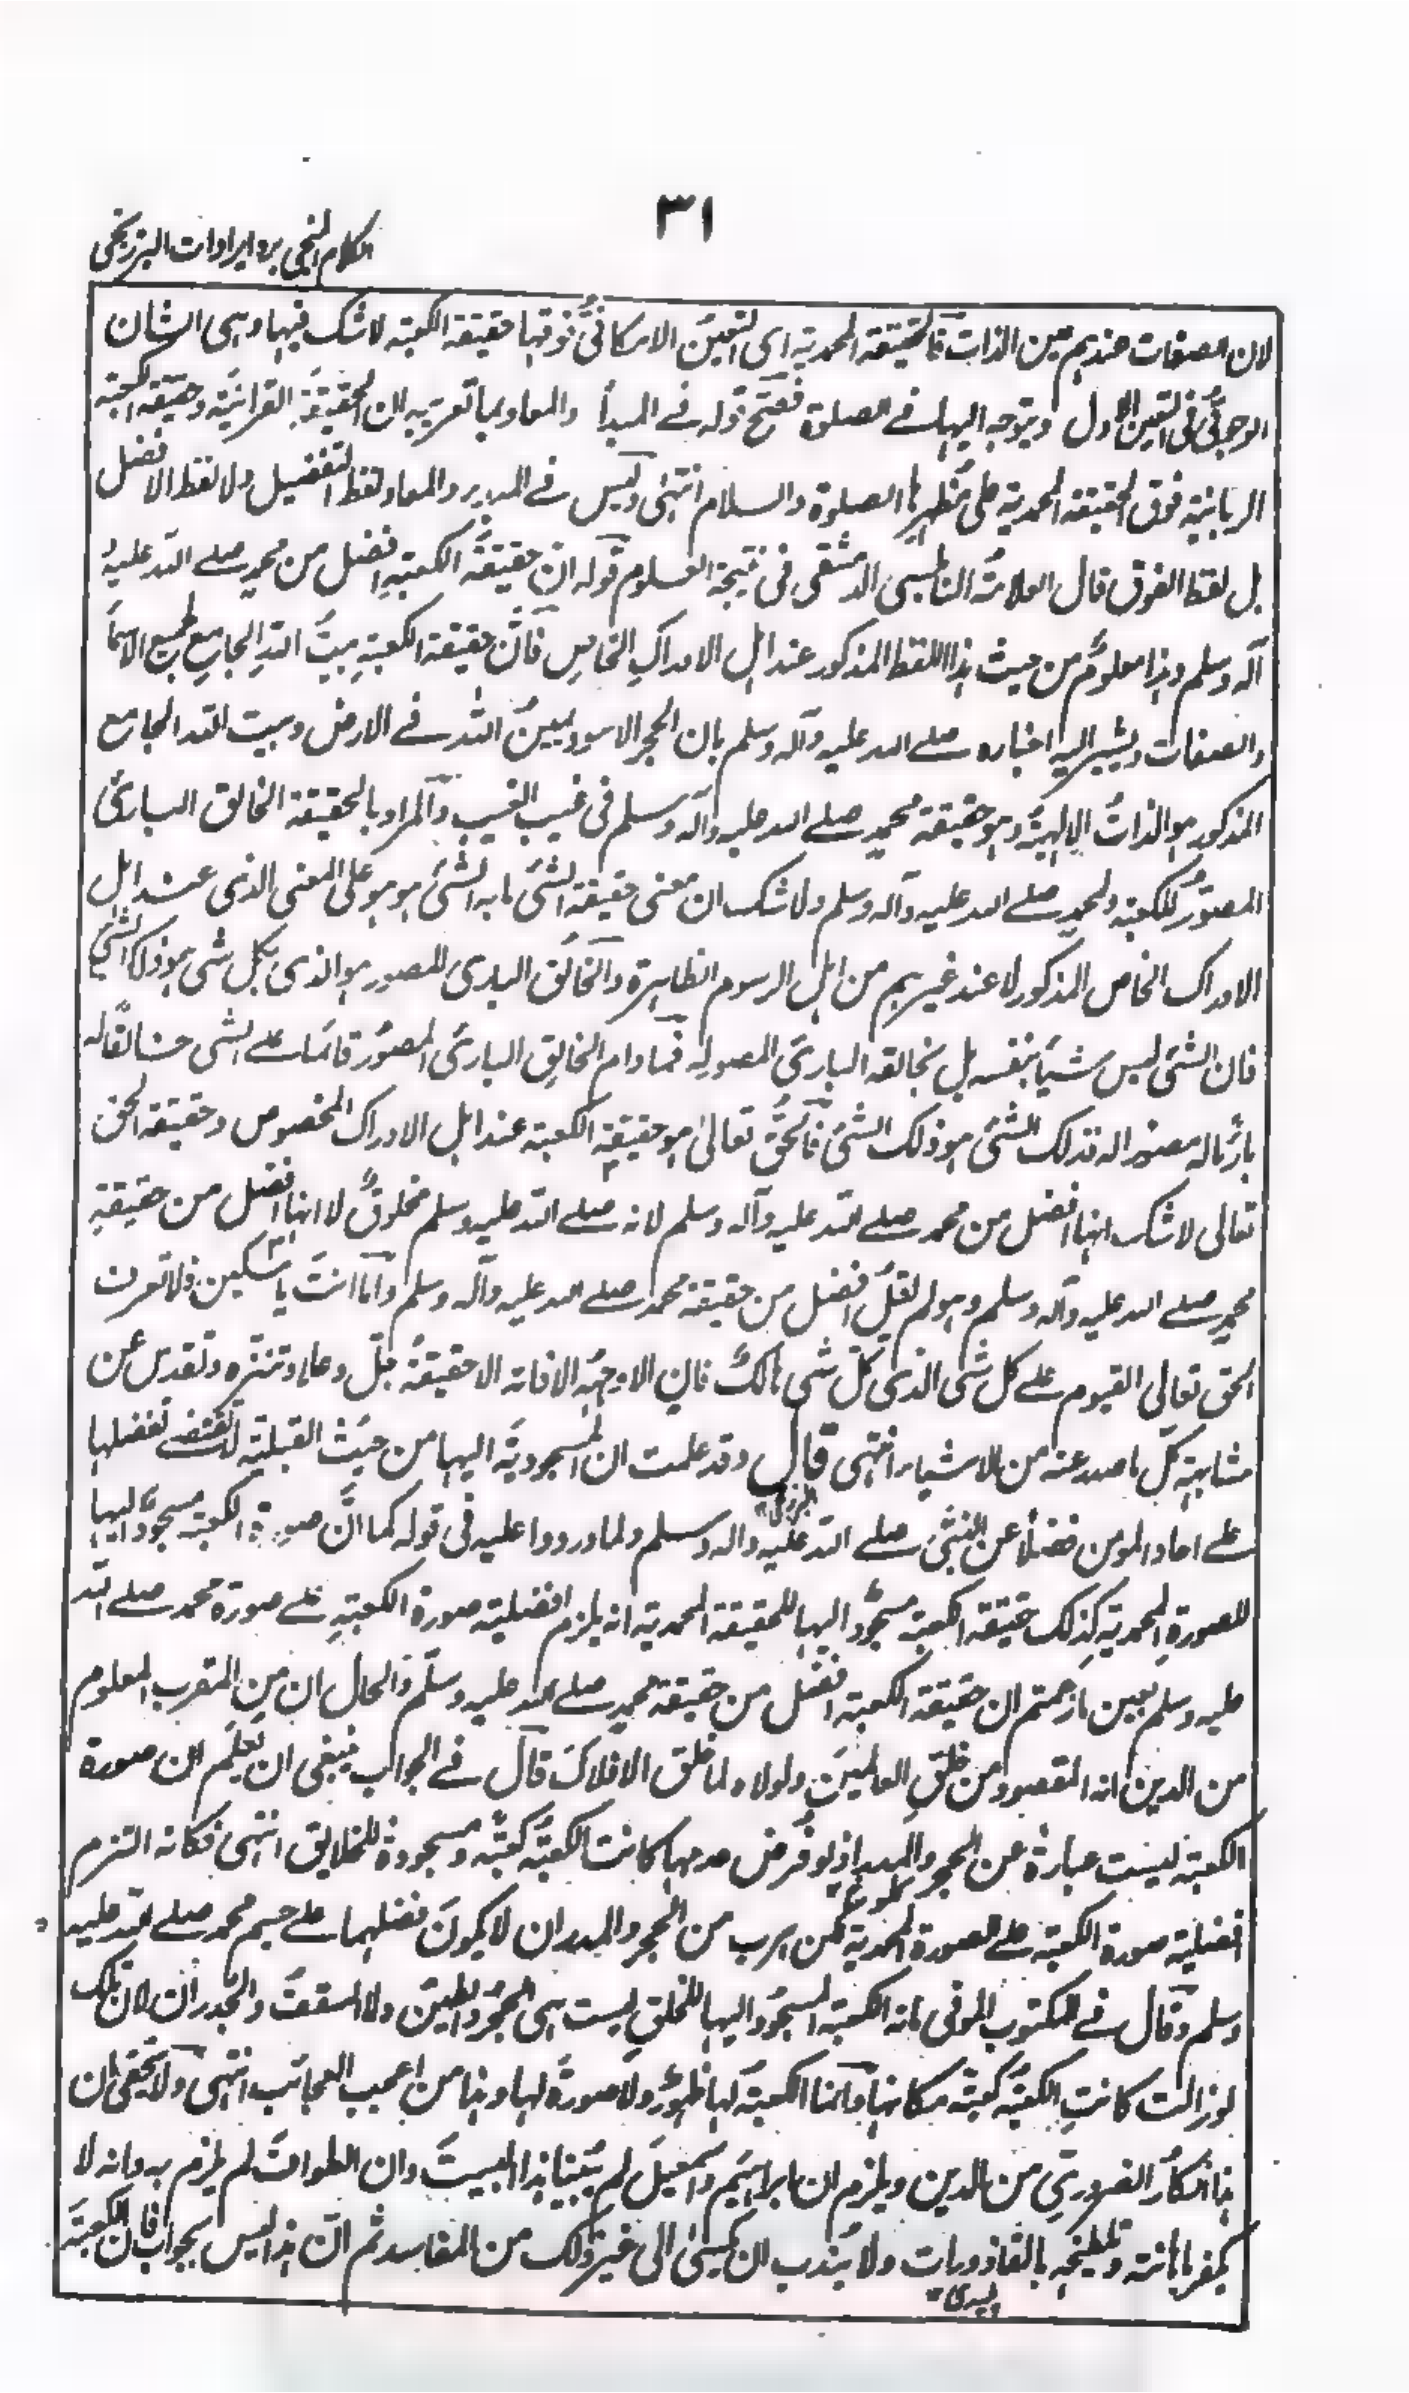 ٣١
الكلام المنجي برد ايرادات البرزنجي
لان الصفات عندهم عين الذات فالحقيقة المحمدية اى التعين الامكانىُّ فوقها حقيقة الكعبة لاشك فيها وهى الشان
الوجوبىُّ فى التعين الاول ويتوجه اليها فے الصلوة فصح قوله فے المبدأ والمعاد بما تعريبه ان الحقيقة القرانية وحقيقة الكعبة
الربانية فوق الحقيقة المحمدية على مُظهرها الصلوة والسلام انتهى وليس فے المبدء والمعاد لفظ التفضيل ولا لفظ الافضل
بل لفظ الفوق قال العلامة النابلسى الدمشقى فى نتيجة العلوم قوله ان حقيقةَ الكعبةِ افضل من محمدٍ صلے الله عليه
آله وسلم وهذا معلومٌ من حيث هذا اللفظ المذكور عند اهل الادراكِ الخاصِ فانَّ حقيقة الكعبةِ بيتُ اللهِ الجامعِ لجميع الاسمآ
والصفات ويشير اليه اخباره صلے الله عليه وآله وسلم بان الحجر الاسود يمينُ الله فے الارض وبيت الله الجامع
المذكور هو الذاتُ الالهيةُ وهو حقيقة محمدٍ صلے الله عليه وآله وسلم فى غيب الغيب والمراد بالحقيقة الخالق البارئُ
المصوّرُ للكعبة ولمحمدٍ صلے الله عليه وآله وسلم ولاشك ان معنى حقيقة الشئ ما به الشئ هو هو على المعنى الذى عند اهل
الادراك الخاص المذكور لا عند غيرهم من اهل الرسوم الظاهرة والخالق البارئ المصور هو الذى بكل شئ هو ذلك الشئ
فان الشئ ليس شيئا بنفسه بل بخالقه البارئ المصور له فمادام الخالق البارئ المصوّر قائما علے الشئ خالقًا له
بارئا له مصورا له فذلك الشئ هو ذلك الشئ فالحقُّ تعالى هو حقيقةِ الكعبة عند اهل الادراك المخصوص وحقيقة الحق
تعالى لاشك انها افضل من محمد صلے الله عليه وآله وسلم لانه صلے الله عليه وسلم مخلوقٌ لا انها افضل من حقيقةِ
محمدٍ صلے الله عليه وآله وسلم وهو لم يقل افضل من حقيقة محمد صلے الله عليه وآله وسلم وأما انتَ يا مسكين فلا تعرف
الحق تعالى القيوم علے كل شئ الذى كلّ شئ هالكٌ فانٍ الا وجهُه الا ذاته الا حقيقةُ جلّ وعلا وتنزه وتقدس عن
مشابهة كلّ ما صدر عنه من الاشياء انتهى قال وقد علمت ان المسجوديةَ اليها من حيثُ القبلية لا يقتضے تفضلها
البرزنجى
علے احاد المومن فضلًا عن النبىِّ صلے الله عليه واله وسلم ولما وردوا عليه فى قوله كما انَّ صورة الكعبة مسجودٌ اليها
للصورةِ المحمدية كذلك حقيقة الكعبة مسجودٌ اليها للحقيقة المحمدية انه يلزم افضلية صورة الكعبةِ علے صورة محمد صلے الله
عليه وسلم بعين ما زعمتم ان حقيقة الكعبة افضل من حقيقة محمدٍ صلے الله عليه وسلّم والحال ان من المقرب المعلوم
من الدين انه المقصود من خلقِ العالمينَ ولولاه لما خلق الافلاكَ قالَ فے الجواب ينبغى ان يعلم ان صورة
الكعبة ليست عبارةً عن الحجر والمدر اذ لو فُرض عدمها كانت الكعبةُ كعبةً ومسجودة للخلايق انتهى فكانه التزم
افضلية صورة الكعبة على الصورة المحمدية لكن هرب من الحجر والمدر ان لا يكونَ فضلهما علے جسم محمد صلے الله عليه
وسلم وقال فے المكتوب الموفى مائة الكعبة المسجود اليها للخلقِ ليست هى الحجرُ والطينُ ولا السقفُ والجُدرانَ لان تلك
لو زالت كانتِ الكعبةُ كعبةً مكانها وانما الكعبةُ لها ظهورٌ ولا صورةً لها وهذا من اعجب العجائب انتهى ولا يخفى ان
هذا انكارُ الضرورىِّ من الدين ويلزم ان ابراهيم واسمعيلَ لم يَبنيا هذا البيتَ وان الطوافَ لم يلزم به وانه لا
يكفر باهانته وتلطيخه بالقاذورات ولا يندب ان يكسىٰ الى غير ذلك من المفاسد ثم انّ هذا ليس بجواب فان الكعبةَ